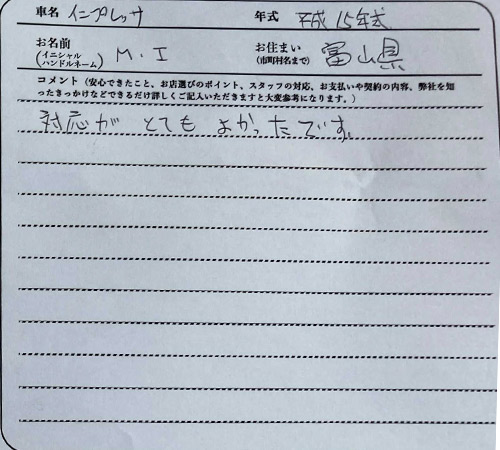 車名 インプレッサ 年式 平成15年式
お名前 (イニシャル ハンドルネーム) M.I お住まい (市町村名まで) 富山県
コメント(安心できたこと、お店選びのポイント、スタッフの対応、お支払いや契約の内容、弊社を知
ったきっかけなどできるだけ詳しくご記入いただきますと大変参考になります。)
対応が とてもよかったです。